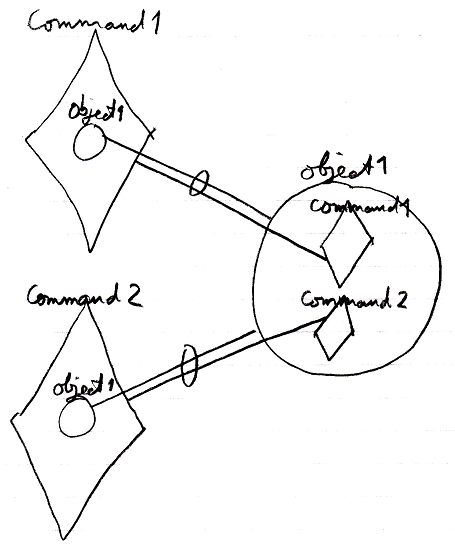 Command1
object1
object1
Command1
Command2
Command2
object1